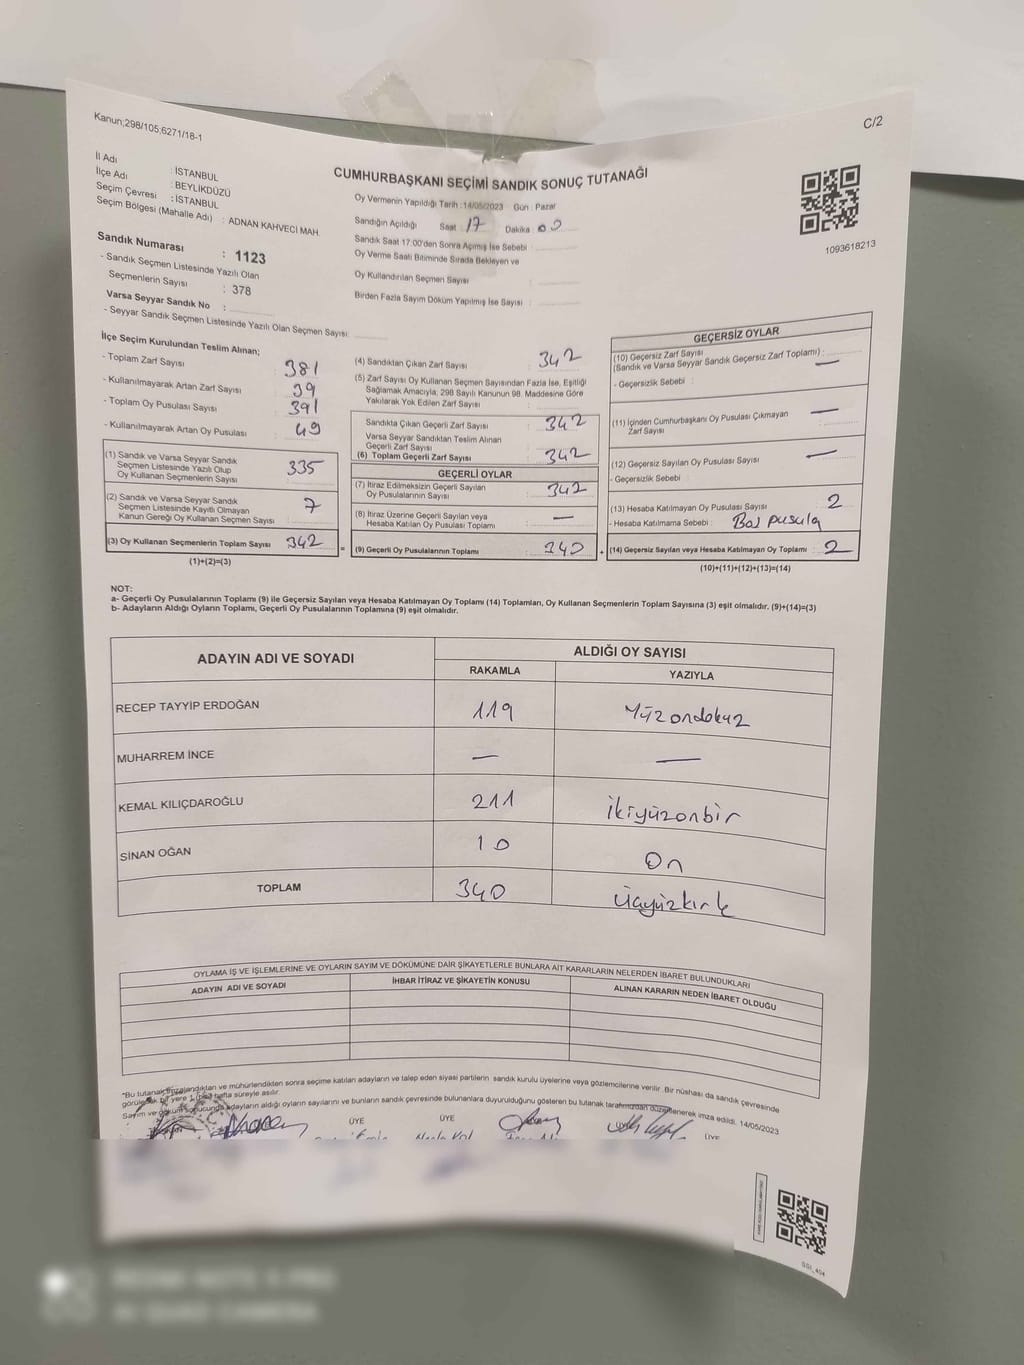 Kanun;298/105;6271/18-1
C/2
CUMHURBAŞKANI SEÇİMİ SANDIK SONUÇ TUTANAĞI
İl Adı : İSTANBUL
İlçe Adı : BEYLİKDÜZÜ
Seçim Çevresi : İSTANBUL
Seçim Bölgesi (Mahalle Adı) : ADNAN KAHVECİ MAH.
Sandık Numarası : 1123
- Sandık Seçmen Listesinde Yazılı Olan
Seçmenlerin Sayısı : 378
Varsa Seyyar Sandık No :
- Seyyar Sandık Seçmen Listesinde Yazılı Olan Seçmen Sayısı:
Oy Vermenin Yapıldığı Tarih :14/05/2023 Gün : Pazar
Sandığın Açıldığı Saat : 17 Dakika : 00
Sandık Saat 17.00'den Sonra Açımış İse Sebebi :
Oy Verme Saati Bitiminde Sırada Bekleyen ve
Oy Kullandırılan Seçmen Sayısı :
Birden Fazla Sayım Döküm Yapılmış İse Sayısı :
1093618213
İlçe Seçim Kurulundan Teslim Alınan;
- Toplam Zarf Sayısı : 381
- Kullanılmayarak Artan Zarf Sayısı : 39
- Toplam Oy Pusulası Sayısı : 391
- Kullanılmayarak Artan Oy Pusulası : 49
(1) Sandık ve Varsa Seyyar Sandık
Seçmen Listesinde Yazılı Olup
Oy Kullanan Seçmenlerin Sayısı : 335
(2) Sandık ve Varsa Seyyar Sandık
Seçmen Listesinde Kayıtlı Olmayan
Kanun Gereği Oy Kullanan Seçmen Sayısı : 7
(3) Oy Kullanan Seçmenlerin Toplam Sayısı : 342
(1)+(2)=(3)
(4) Sandıktan Çıkan Zarf Sayısı : 342
(5) Zarf Sayısı Oy Kullanan Seçmen Sayısından Fazla İse, Eşitliği
Sağlamak Amacıyla; 298 Sayılı Kanunun 98. Maddesine Göre
Yakılarak Yok Edilen Zarf Sayısı :
Sandıkta Çıkan Geçerli Zarf Sayısı : 342
Varsa Seyyar Sandıktan Teslim Alınan
Geçerli Zarf Sayısı :
(6) Toplam Geçerli Zarf Sayısı : 342
GEÇERLİ OYLAR
(7) İtiraz Edilmeksizin Geçerli Sayılan
Oy Pusulalarının Sayısı : 342
(8) İtiraz Üzerine Geçerli Sayılan veya
Hesaba Katılan Oy Pusulası Toplamı : —
= (9) Geçerli Oy Pusulalarının Toplamı : 340
GEÇERSİZ OYLAR
(10) Geçersiz Zarf Sayısı
(Sandık ve Varsa Seyyar Sandık Geçersiz Zarf Toplamı) : —
- Geçersizlik Sebebi :
(11) İçinden Cumhurbaşkanı Oy Pusulası Çıkmayan
Zarf Sayısı : —
(12) Geçersiz Sayılan Oy Pusulası Sayısı : —
- Geçersizlik Sebebi :
(13) Hesaba Katılmayan Oy Pusulası Sayısı : 2
- Hesaba Katılmama Sebebi : Boş pusula
+ (14) Geçersiz Sayılan veya Hesaba Katılmayan Oy Toplamı : 2
(10)+(11)+(12)+(13)=(14)
NOT:
a- Geçerli Oy Pusulalarının Toplamı (9) ile Geçersiz Sayılan veya Hesaba Katılmayan Oy Toplamı (14) Toplamları, Oy Kullanan Seçmenlerin Toplam Sayısına (3) eşit olmalıdır. (9)+(14)=(3)
b- Adayların Aldığı Oyların Toplamı, Geçerli Oy Pusulalarının Toplamına (9) eşit olmalıdır.
ADAYIN ADI VE SOYADI ALDIĞI OY SAYISI
RAKAMLA YAZIYLA
RECEP TAYYİP ERDOĞAN 119 Yüzondokuz
MUHARREM İNCE — —
KEMAL KILIÇDAROĞLU 211 ikiyüzonbir
SİNAN OĞAN 10 On
TOPLAM 340 üçyüzkırk
OYLAMA İŞ VE İŞLEMLERİNE VE OYLARIN SAYIM VE DÖKÜMÜNE DAİR ŞİKAYETLERLE BUNLARA AİT KARARLARIN NELERDEN İBARET BULUNDUKLARI
ADAYIN ADI VE SOYADI İHBAR İTİRAZ VE ŞİKAYETİN KONUSU ALINAN KARARIN NEDEN İBARET OLDUĞU
*Bu tutanak imzalandıktan ve mühürlendikten sonra seçime katılan adayların ve talep eden siyasi partilerin sandık kurulu üyelerine veya gözlemcilerine verilir. Bir nüshası da sandık çevresinde
görülecek bir yere 1 (bir) hafta süreyle asılır.
Sayım ve döküm sonucunda adayların aldığı oyların sayılarını ve bunların sandık çevresinde bulunanlara duyurulduğunu gösteren bu tutanak tarafımızdan düzenlenerek imza edildi. 14/05/2023
ÜYE ÜYE ÜYE
REDMI NOTE 8 PRO
AI QUAD CAMERA